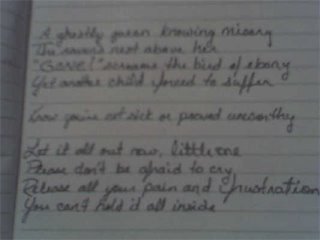 A ghostly queen knowing misery
The ravens nest above her
"Gone!" screams the bird of ebony
Yet another child forced to suffer
Know you're not sick or proved unworthy
Let it all out now, little one
Please don't be afraid to cry
Release all your pain and frustration
You can't hold it all inside